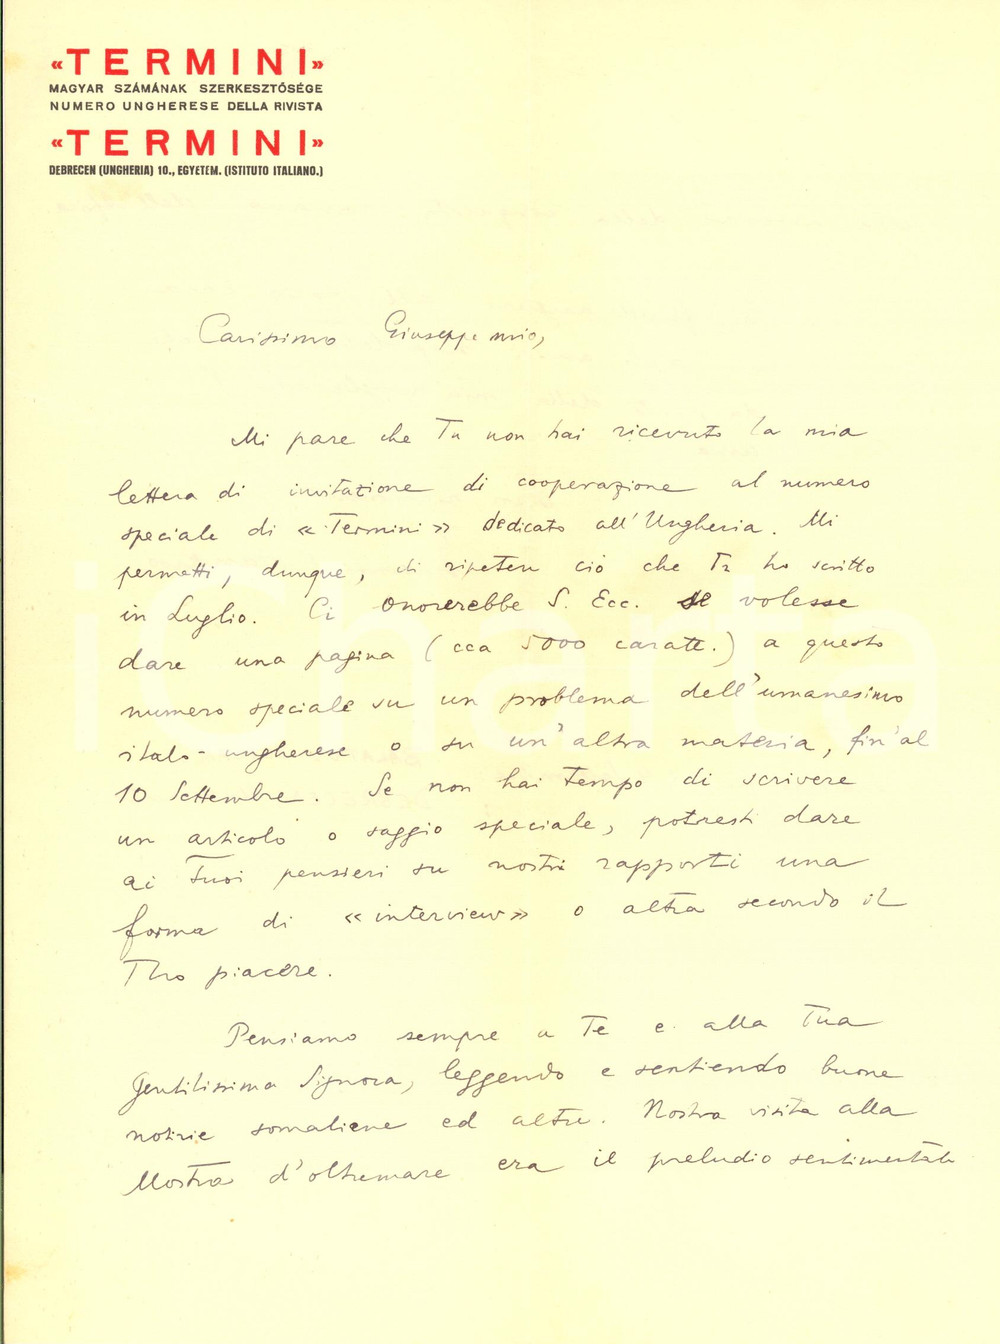 «TERMINI»
MAGYAR SZÁMÁNAK SZERKESZTŐSÉGE
NUMERO UNGHERESE DELLA RIVISTA
«TERMINI»
DEBRECEN (UNGHERIA) 10., EGYETEM. (ISTITUTO ITALIANO.)
Carissimo Giuseppe mio,
Mi pare che Tu non hai ricevuto la mia
lettera di invitazione di cooperazione al numero
speciale di «Termini» dedicato all'Ungheria. Mi
permetti, dunque, di ripetere ciò che Ti ho scritto
in Luglio. Ci onorerebbe S. Ecc. se volesse
dare una pagina (cca 5000 caratt.) a questo
numero speciale su un problema dell'umanesimo
italo-ungherese o su un'altra materia, fin'al
10 Settembre. Se non hai tempo di scrivere
un articolo o saggio speciale, potresti dare
ai Tuoi pensieri su nostri rapporti una
forma di «interview» o altra secondo il
Tuo piacere.
Pensiamo sempre a Te e alla Tua
Gentilissima Signora, leggendo e sentiendo buone
notizie somaliene ed altre. Nostra visita alla
Mostra d'oltremare era il preludio sentimentale
iCharta